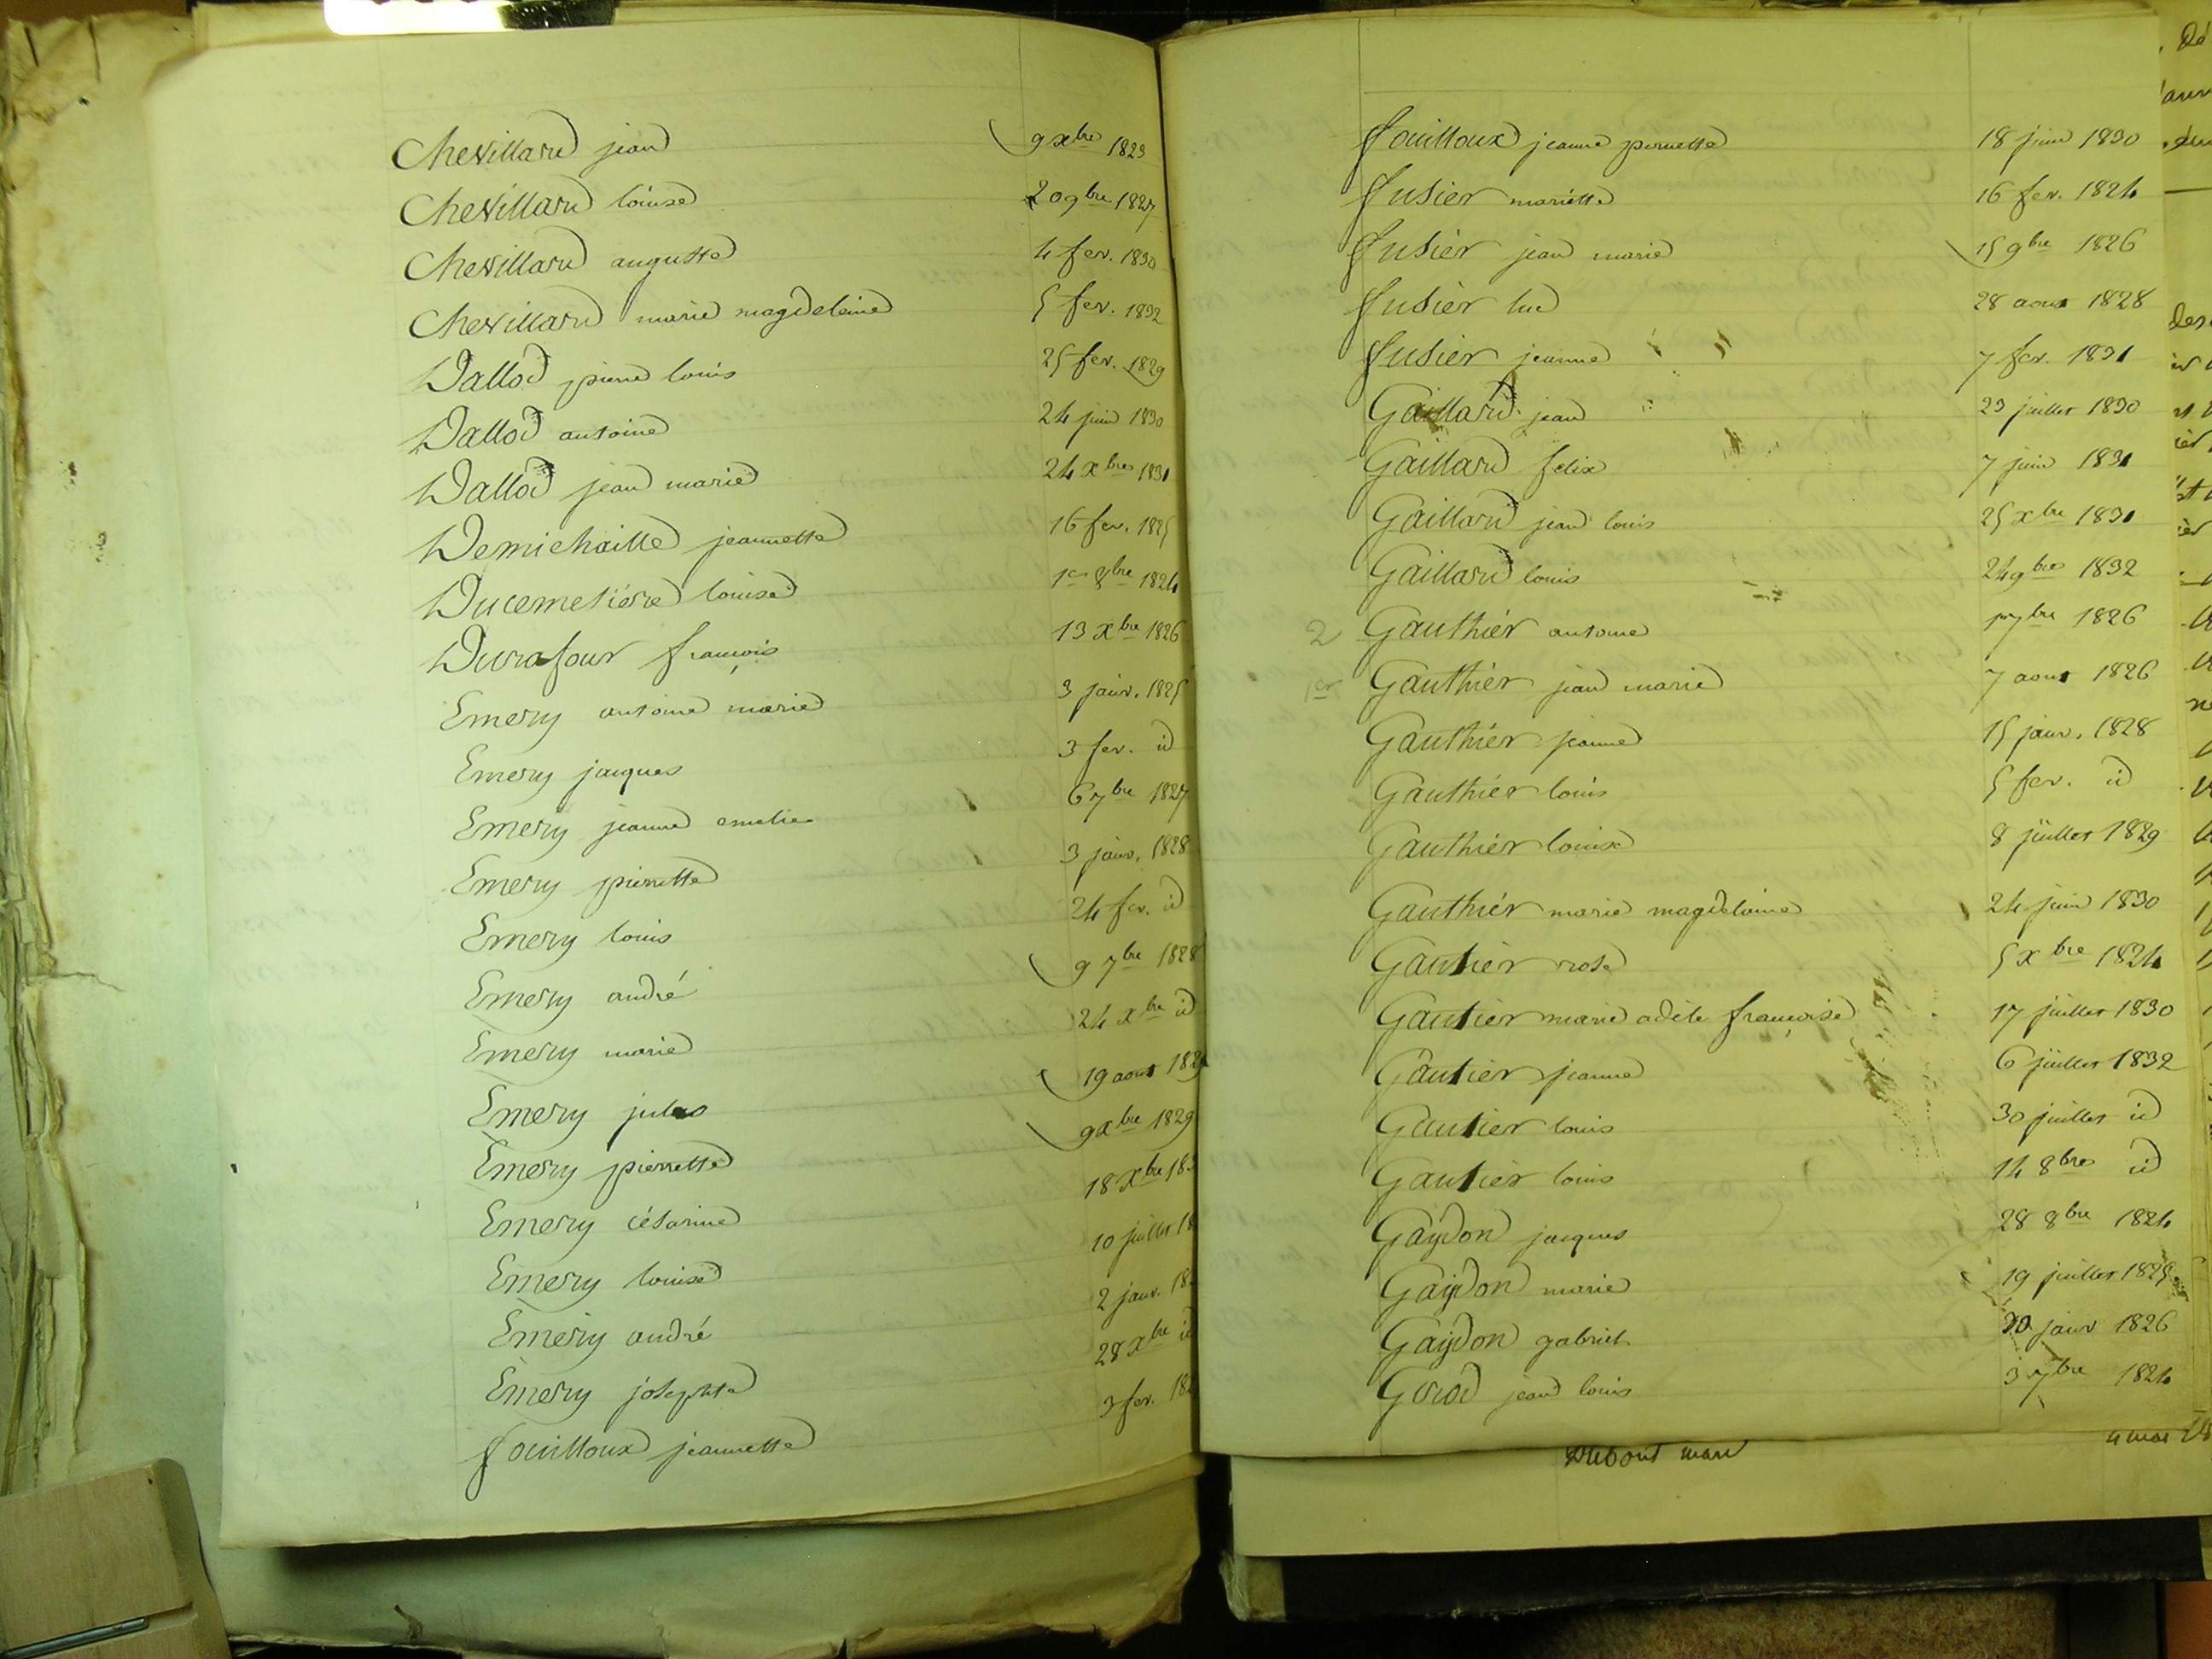 Chevillard jean 9 xbre 1823
Chevillard louise 20 9bre 1827
Chevillard auguste 4 fev. 1830
Chevillard marie magdeleine 5 fev. 1832
Dallod pierre louis 25 fev. 1829
Dallod antoine 24 juin 1830
Dallod jean marie 24 xbre 1831
Demichaille jeannette 16 fev. 1825
Ducemetière louise 1er 8bre 1824
Durafour françois 13 xbre 1826
Emery antoine marie 3 janv. 1825
Emery jacques 3 fev. id
Emery jeanne emelie 6 7bre 1827
Emery pierrette 3 janv. 1828
Emery louis 24 fev. id
Emery andré 9 7bre 1828
Emery marie 24 xbre id
Emery jules 19 aout 1829
Emery pierrette 9 xbre 1829
Emery césarine 18 xbre 183
Emery louise 10 juillet 18
Emery andré 2 janv. 18
Emery josephte 28 xbre id
fouilloux jeannette 3 fev. 182
fouilloux jeanne pernette 18 juin 1830
fusier mariette 16 fev. 1824
fusier jean marie 15 9bre 1826
fusier luc 28 aout 1828
fusier jeanne 7 fev. 1831
Gaillard jean 23 juillet 1830
Gaillard felix 7 juin 1831
Gaillard jean louis 25 xbre 1831
Gaillard louis 24 9bre 1832
2 Gauthier antoine 7bre 1826
1er Gauthier jean marie 7 aout 1826
Gauthier jeanne 15 janv. 1828
Gauthier louis 5 fev. id
Gauthier louise 8 juillet 1829
Gauthier marie magdeleine 24 juin 1830
Gautier rose 5 xbre 1824
Gautier marie adele françoise 17 juillet 1830
Gautier jeanne 6 juillet 1832
Gautier louis 30 juillet id
Gautier louis 14 8bre id
Gaÿdon jacques 28 8bre 1824
Gaÿdon marie 19 juillet 1825
Gaÿdon gabriel janv 1826
Girod jean louis 3 7bre 1824